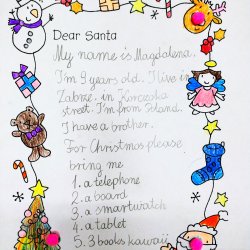 Dear Santa
My name is Magdalena.
I'm 9 years old. I live in
Zabrze. in Korczoka
street. I'm from Poland.
I have a brother.
For Christmas please
bring me
1. a telephone
2. a board
3. a smartwatch
4. a tablet
5. 3 books kawaii